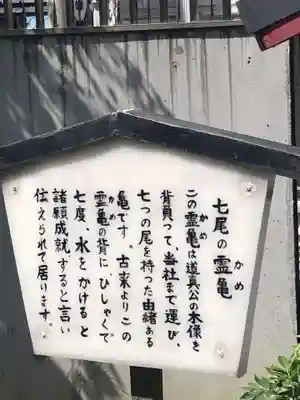 七尾の霊亀
かめ
この霊亀は道真公の木像を
かめ
背負って、当社まで運び、
七つの尾を持った由緒ある
亀です。古来よりこの
かめ
霊亀の背に、ひしゃくで
かめ
七度、水をかけると
諸願成就すると言い
伝えられて居ります。